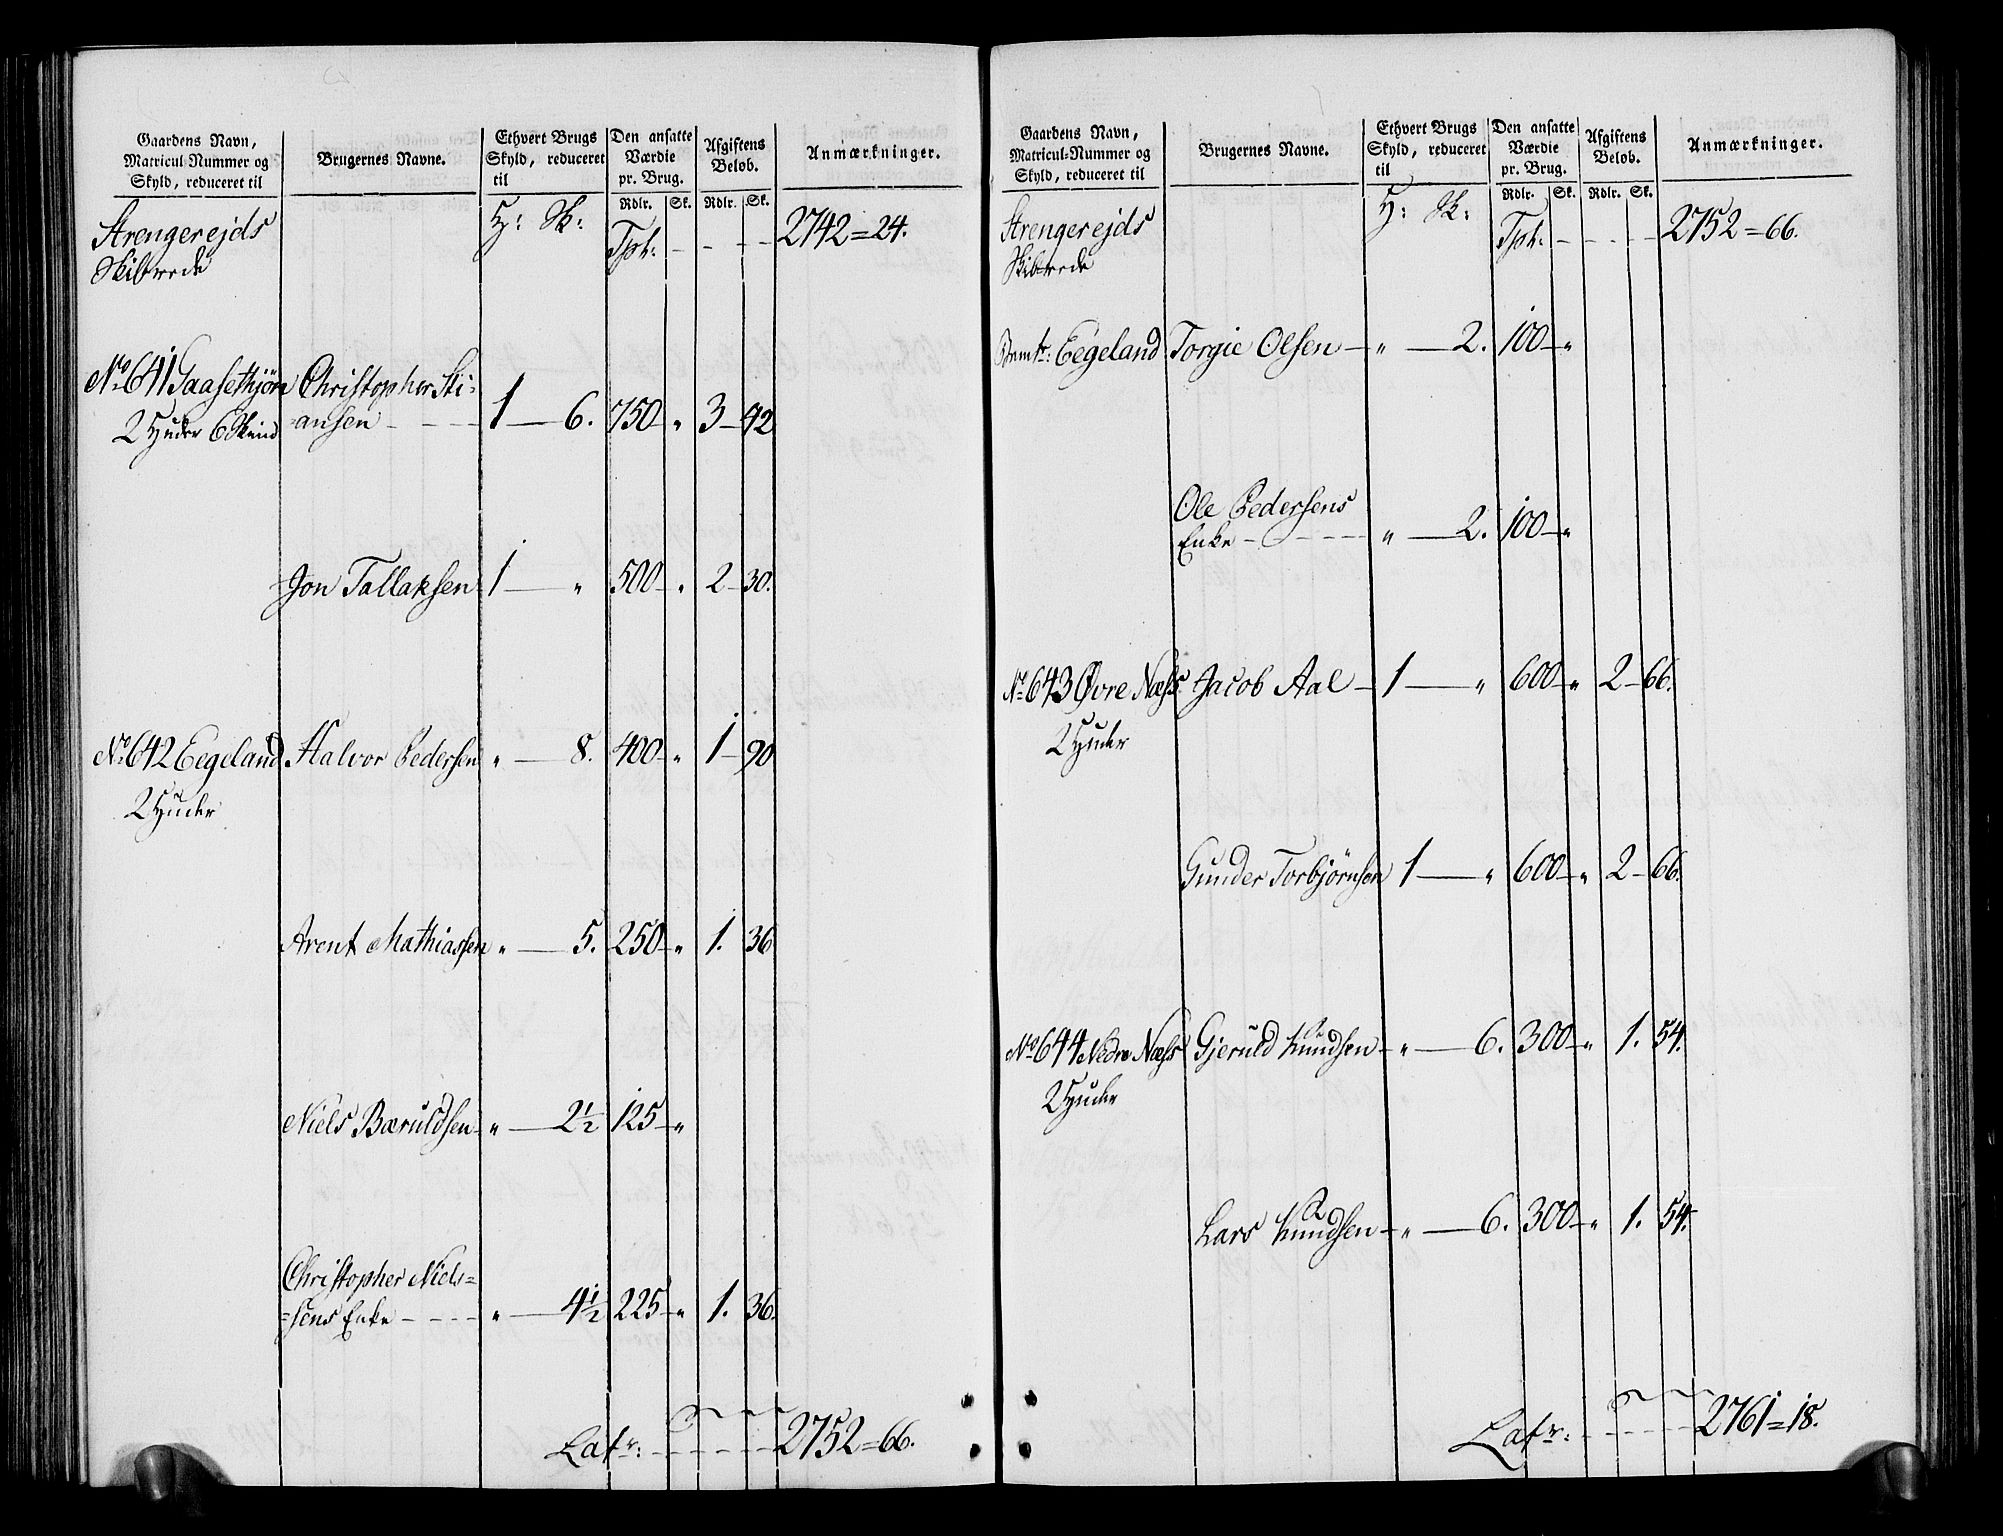 Gaardens Navn, Matricul-Nummer og Skyld, reduceret til | Brugernes Navne. | Ethvert Brugs Skyld, reduceret til | Den ansatte Værdie pr. Brug. | Afgiftens Beløb. | Anmærkninger.
Rdlr. | Sk. | Rdlr. | Sk.
Strengerejds H: Sk: Tpt: - - - - 2742=24.
Skibrede
No 641 Saasethjørn Christopher Sti=
2 Huder 6 Skind =ansen - - - 1 — 6. 750 — " 3 — 42
Jon Tallaksen 1 — " 500 — " 2 — 30.
No 642 Eegeland Halvor Pedersen " — 8. 400 — " 1 — 90
2 Huder
Arent Mathiassen " — 5. 250 — " 1. 36
Niels Bæruldsen " — 2½ 125 — "
Christopher Niels=
=sens Enke - - - - " — 4½ 225 — " 1. 36.
Latr: - - - - - 2752=66.
Gaardens Navn, Matricul-Nummer og Skyld, reduceret til | Brugernes Navne. | Ethvert Brugs Skyld, reduceret til | Den ansatte Værdie pr. Brug. | Afgiftens Beløb. | Anmærkninger.
Rdlr. | Sk. | Rdlr. | Sk.
Strengerejds H: Sk: Tpt: - - - - 2752=66.
Skibrede
Eegeland Torgie Olsen — " — 2. 100 — "
Ole Pedersens
Enke - - - - " — 2. 100 — "
No 643 Øvre Næss Jacob Aal — 1 — " 600 — " 2 — 66.
2 Huder
Gunder Torbjørnsen 1 — " 600 — " 2 — 66.
No 644 Nedre Næss Gjeruld Knudsen — " — 6. 300 — " 1. 54.
2 Huder
Lars Knudsen — " — 6. 300 — " 1. 54.
Latr: - - - - - 2761=18.